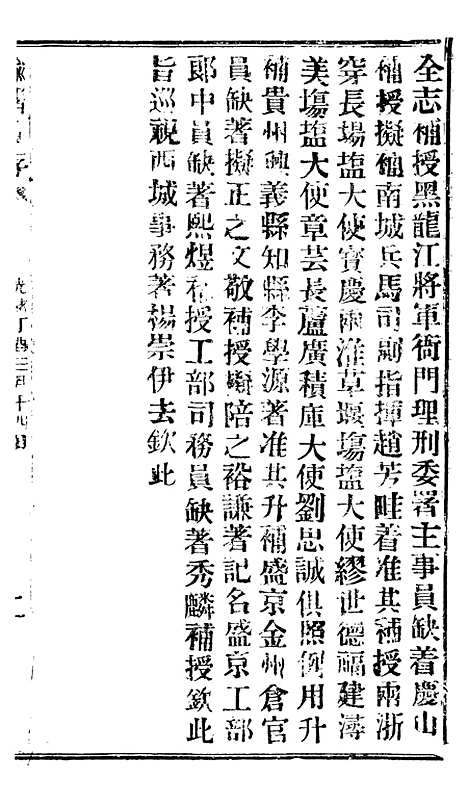 全志補授黑龍江將軍衙門理刑委署主事員缺着慶山
補授擬補南城兵馬司副指揮趙芳畦着准其補授兩浙
穿長場塩大使寶慶兩淮草堰塲塩大使繆世德福建潯
美塲塩大使章芸長蘆廣積庫大使劉忠誠俱照例用升
補貴州興義縣知縣李學源著准其升補盛京金州倉官
員缺著擬正之文敬補授擬陪之裕謙著記名盛京工部
郎中員缺著熙煜補授工部司務員缺著秀麟補授欽此
旨巡視西城事務著楊崇伊去欽此
光緒丁酉三月十九